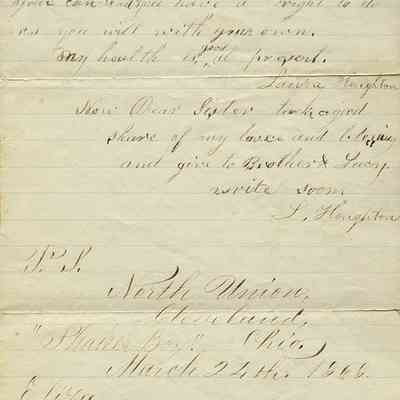 have a right to do
as you will with your own.
My health is good at present.
Laura Houghton
Now Dear Sister take a good
share of my love and blessing
and give to Brother & Lucy
write soon
L. Houghton
P. S.
North Union,
Cleveland,
"Shaker Box" Ohio,
March 24th, 1866
Eliza